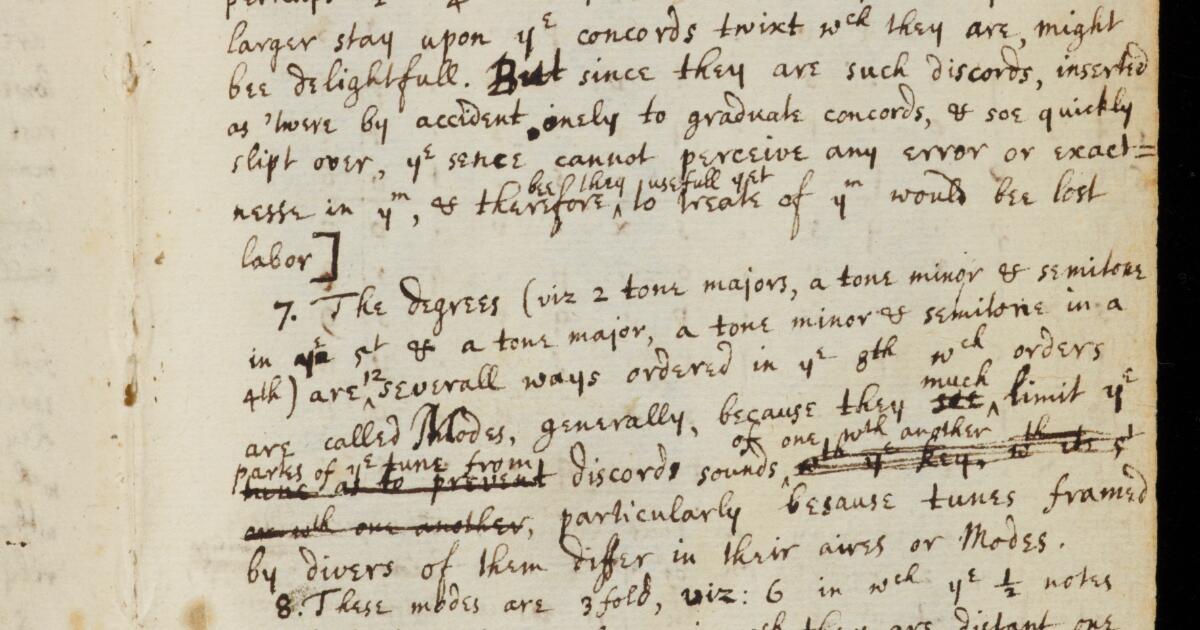 larger stay upon yᵉ concords twixt wᶜʰ they are, might
bee delightfull. But since they are such discords, inserted
as 'twere by accident onely to graduate concords, & soe quickly
slipt over, yᵉ sence cannot perceive any error or exact=
bee they usefull yet
nesse in yᵐ, & therefore ‸ to treate of yᵐ would bee lost
labor]
7. The degrees (viz 2 tone majors, a tone minor & semitone
in yᵉ 5ᵗ & a tone major, a tone minor & semitone in a
4th) are ‸12 severall ways ordered in yᵉ 8th wᶜʰ orders
much
are called Modes, generally, because they soe ‸ limit yᵉ
partes of yᵉ tune from of one wᵗʰ another
tune as to prevent discords sounds, wᵗʰ yᵉ key, its 5ᵗ
or wᵗʰ one another, particularly because tunes framed
by divers of them differ in their aires or Modes.
8. These modes are 3 fold, viz: 6 in wᶜʰ yᵉ ½ notes
they are distant one